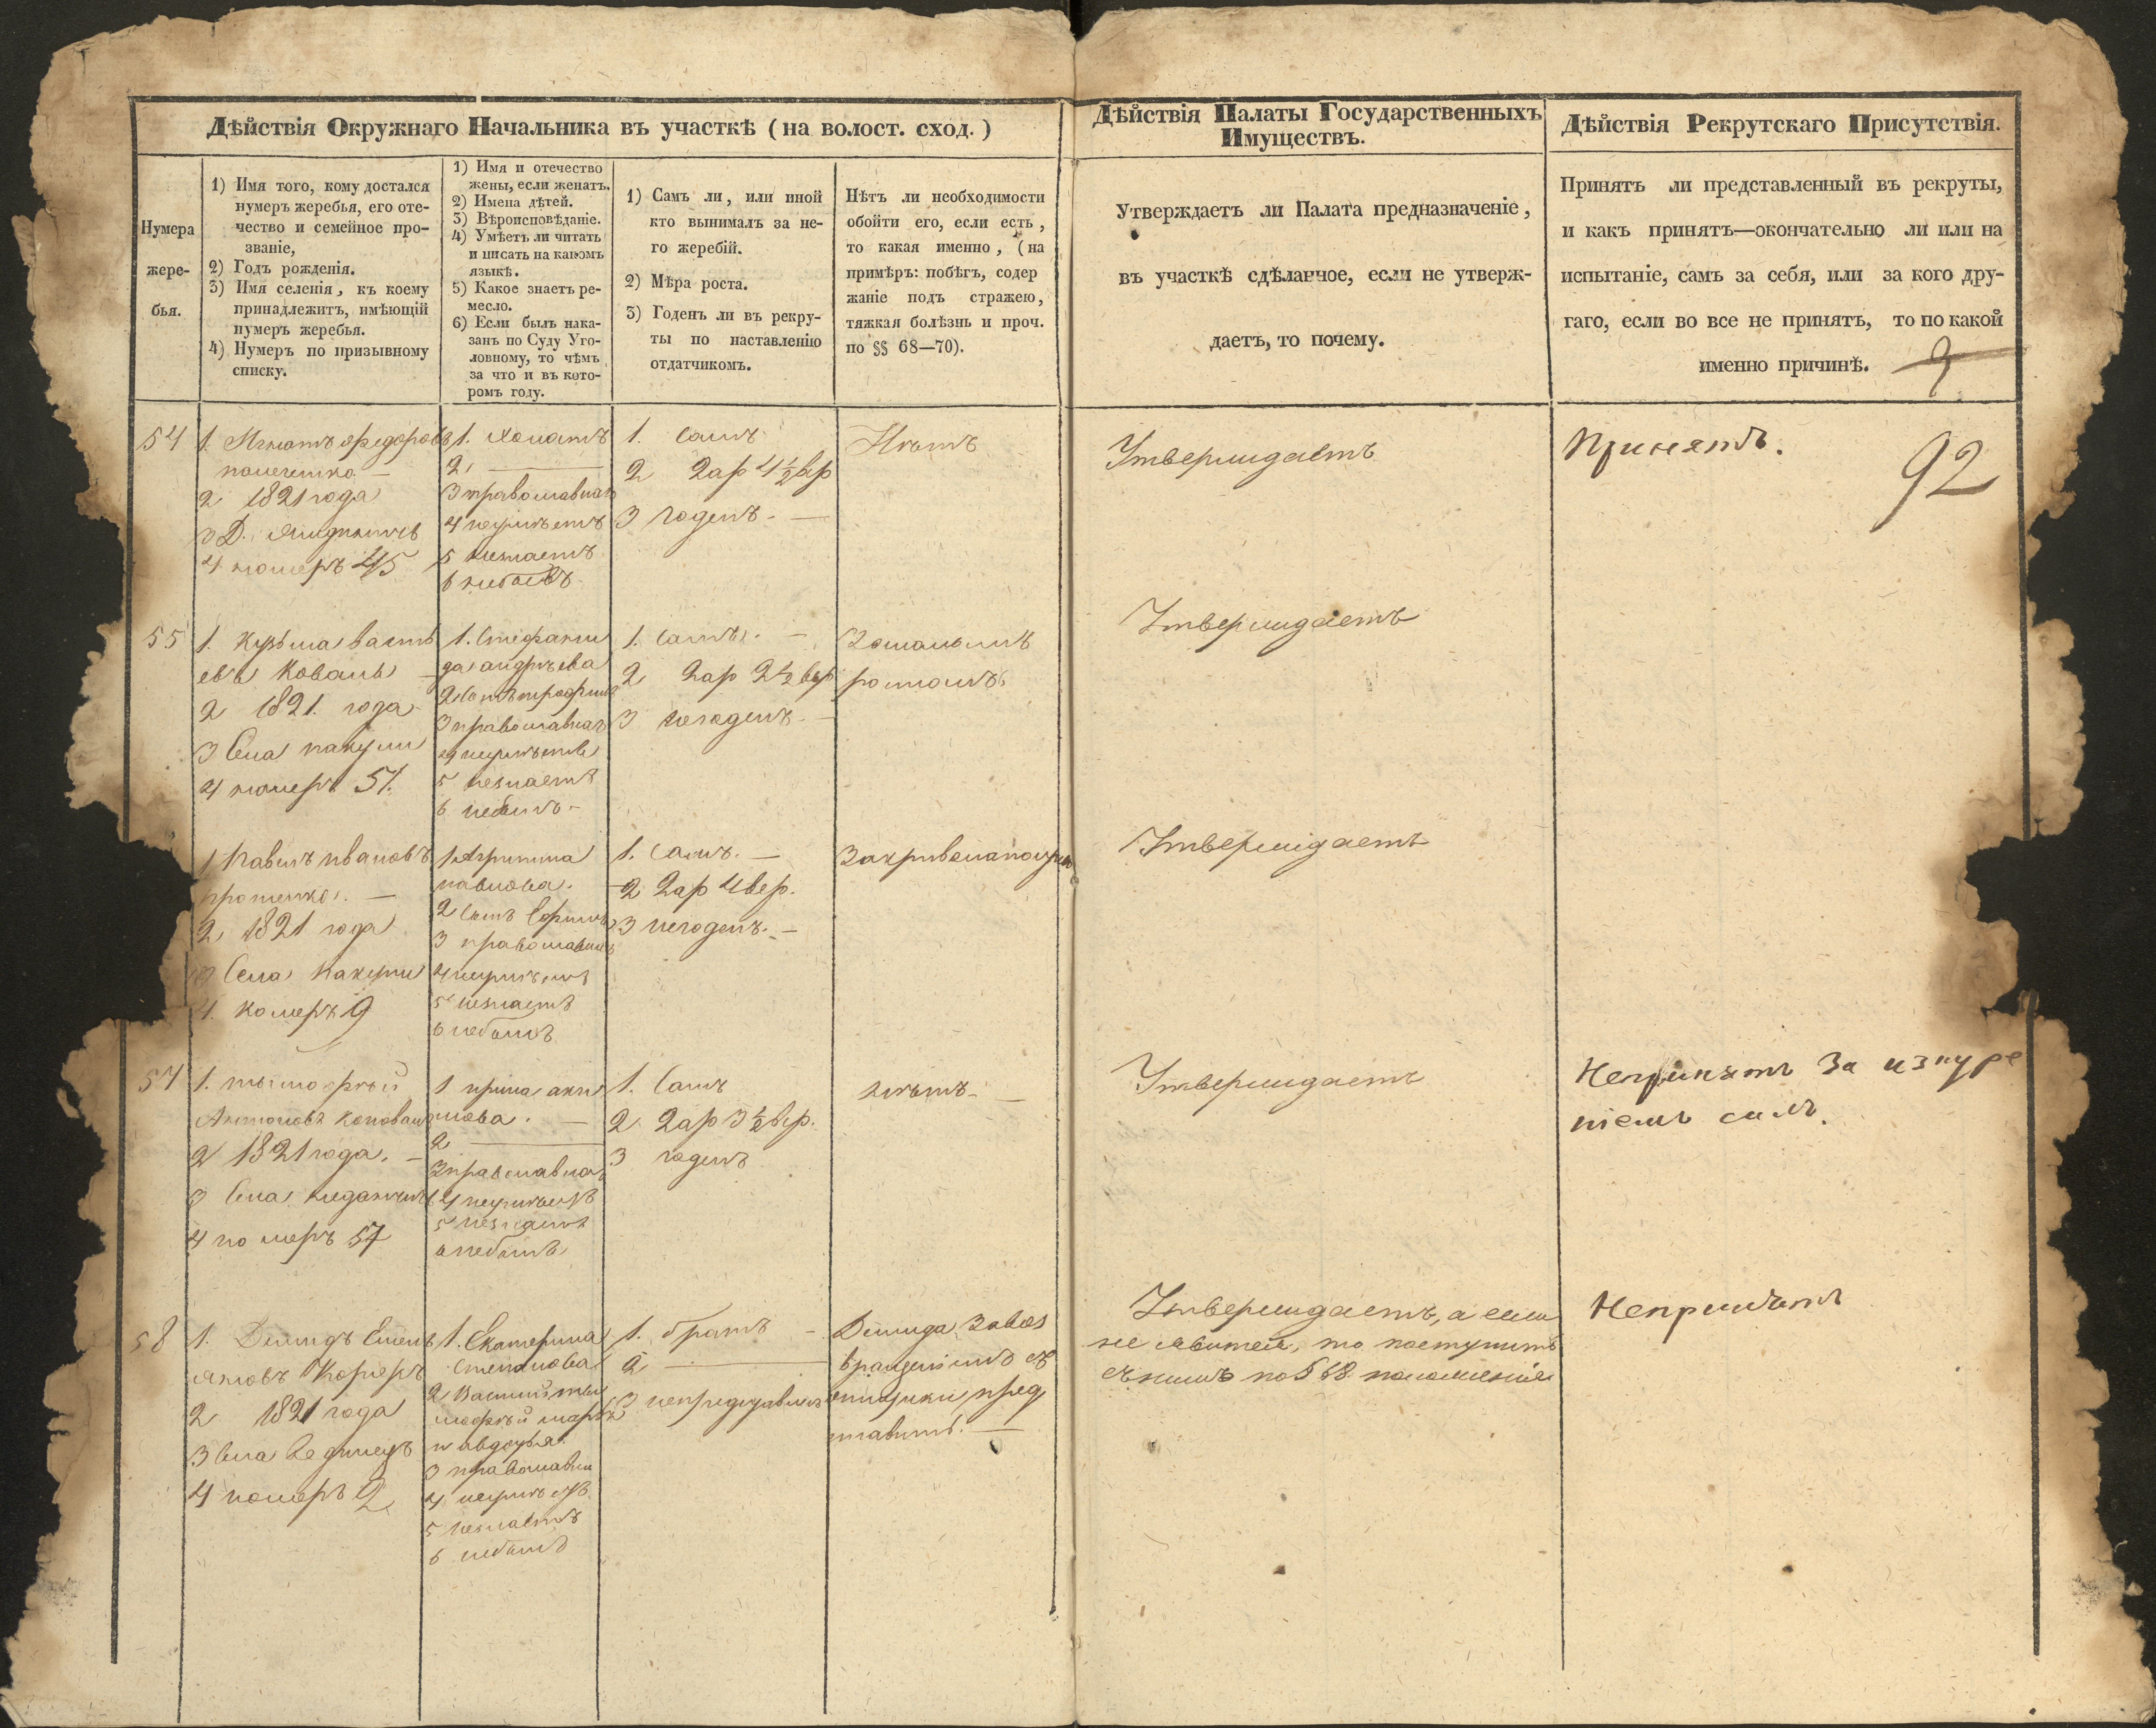 Дѣйствія Окружнаго Начальника въ участкѣ (на волост. сход.)
Дѣйствія Палаты Государственныхъ
Имуществъ.
Дѣйствія Рекрутскаго Присутствія.
Нумера
жере-
бья.
1) Имя того, кому достался
нумеръ жеребья, его оте-
чество и семейное про-
званіе,
2) Годъ рожденія.
3) Имя селенія, къ коему
принадлежитъ, имѣющій
нумеръ жеребья.
4) Нумеръ по призывному
списку.
1) Имя и отечество
жены, если женатъ.
2) Имена дѣтей.
3) Вѣроисповѣданіе.
4) Умѣетъ ли читать
и писать на какомъ
языкѣ.
5) Какое знаетъ ре-
месло.
6) Если былъ нака-
занъ по Суду Уго-
ловному, то чѣмъ
за что и въ кото-
ромъ году.
1) Самъ ли, или иной
кто вынималъ за не-
го жеребій.
2) Мѣра роста.
3) Годенъ ли въ рекру-
ты по наставленію
отдатчикомъ.
Нѣтъ ли необходимости
обойти его, если есть,
то какая именно, (на
примѣръ: побѣгъ, содер
жаніе подъ стражею,
тяжкая болѣзнь и проч.
по §§ 68—70).
Утверждаетъ ли Палата предназначеніе,
въ участкѣ сдѣланное, если не утверж-
даетъ, то почему.
Принятъ ли представленный въ рекруты,
и какъ принятъ—окончательно ли или на
испытаніе, самъ за себя, или за кого дру-
гаго, если во все не принятъ, то по какой
именно причинѣ.
92
54
1. Игнатъ федоровъ
2 1821 года
3 Д.
4 номеръ 45
1. холостъ
2.
3 православная
4 неумѣетъ
5 незнаетъ
6 небылъ
1. самъ
2 2 ар 4 1/2 вер
3 годенъ.
Нѣтъ
Утверждаетъ
Принятъ.
55
1. Кузьма васил
евъ Коваль
2 1821. года
3 Села пакули
4 номеръ 51.
1. Стефани
да андрѣева
2 Сынъ трофимъ
3 православная
4 неумѣетъ
5 незнаетъ
6 небылъ
1. самъ.
2 2 ар 2 1/2 вер
3 негоденъ.
За малымъ
ростомъ.
Утверждаетъ
1 Павелъ ивановъ
2 1821 года
3 Села Пакули
4. номеръ 9
1 Агрипина
павлова.
2 Сынъ Ефимъ
3 православная
4 неумѣетъ
5 незнаетъ
6 небылъ
1. Самъ.
2 2 ар 4 вер.
3 негоденъ.
Утверждаетъ
57
1. тимофѣй
Антоновъ Коновалъ
2 1821 года.
3 Села
4 номеръ 57
1 ирина
2
3 православная
4 неумѣетъ
5 незнаетъ
6 небылъ
1. Самъ
2. 2 ар 3 1/2 вер.
3 годенъ
нѣтъ.
Утверждаетъ
Непринятъ За изнуре
ніемъ силъ.
58
1. Демидъ Емель
яновъ
2 1821 года
3 села
4 номеръ 2
1. Екатерина
Степанова
2 Василий, ти
мофѣй марѳа
и авдотья
3 православная
4 неумѣетъ
5 незнаетъ
6 небылъ
1. братъ
2
3 непредставленъ
Демида За воз
вращениемъ съ
отлучки пред
ставить.
Утверждаетъ, а если
не явится, то поступить
съ нимъ по § 68 положенія
Непринятъ